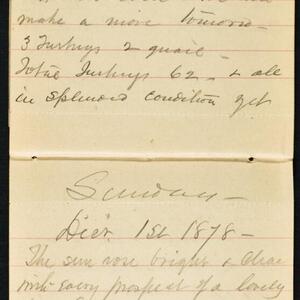 make a move tomorro
3 Turkeys 2 quail -
Total Turkeys 62 - & all
in splendid condition yet
Sunday -
Decr. 1st 1878 -
The sun rose bright & clear
with every prospect of a lovely